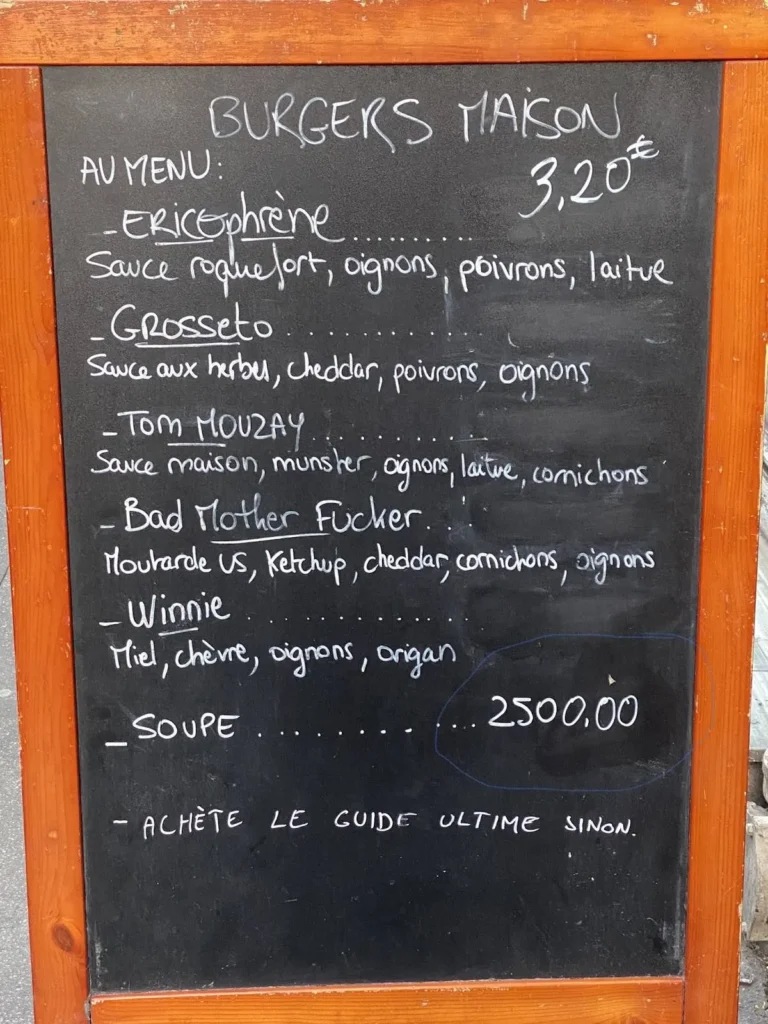 BURGERS MAISON
3,20€
AU MENU:
- ERICOphrène ..........
Sauce roquefort, oignons, poivrons, laitue
- GROSSETO ..............
Sauce aux herbes, cheddar, poivrons, oignons
- Tom MOUZAY ............
Sauce maison, munster, oignons, laitue, cornichons
- Bad Mother Fucker...
Moutarde US, Ketchup, cheddar, cornichons, oignons
- Winnie ..............
Miel, chèvre, oignons, origan
- SOUPE ............ 2500,00
- ACHÈTE LE GUIDE ULTIME SINON.